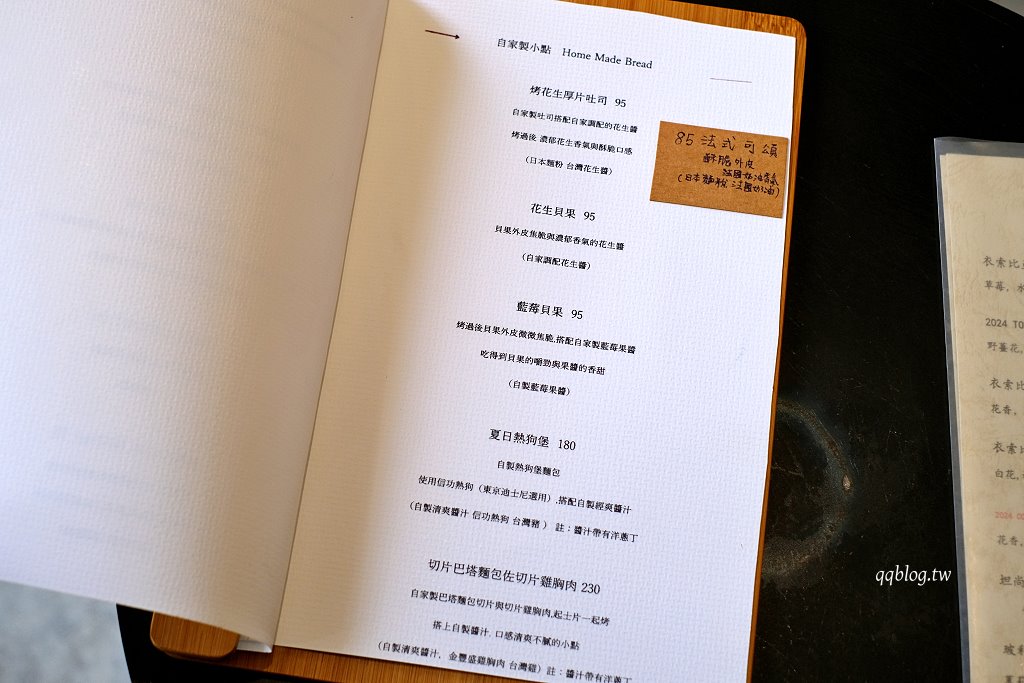 自家製小點 Home Made Bread
烤花生厚片吐司 95
自家製吐司搭配自家調配的花生醬
烤過後 濃郁花生香氣與酥脆口感
（日本麵粉 台灣花生醬）
花生貝果 95
貝果外皮焦脆與濃郁香氣的花生醬
（自家調配花生醬）
藍莓貝果 95
烤過後貝果外皮微微焦脆,搭配自家製藍莓果醬
吃得到貝果的嚼勁與果醬的香甜
（自製藍莓果醬）
夏日熱狗堡 180
自製熱狗堡麵包
使用信功熱狗（東京迪士尼選用）,搭配自製經爽醬汁
（自製清爽醬汁 信功熱狗 台灣豬 ） 註：醬汁帶有洋蔥丁
切片巴塔麵包佐切片雞胸肉 230
自家製巴塔麵包切片與切片雞胸肉,起士片一起烤
搭上自製醬汁. 口感清爽不膩的小點
（自製清爽醬汁, 金豐盛雞胸肉 台灣雞）註：醬汁帶有洋蔥丁
85 法式可頌
酥脆外皮
法國奶油香氣
（日本麵粉 法國奶油）
衣索比
草莓, 水
2024 TO
野薑花,
衣索比
花香,
衣索比
白花,
花香,
坦尚
qqblog.tw